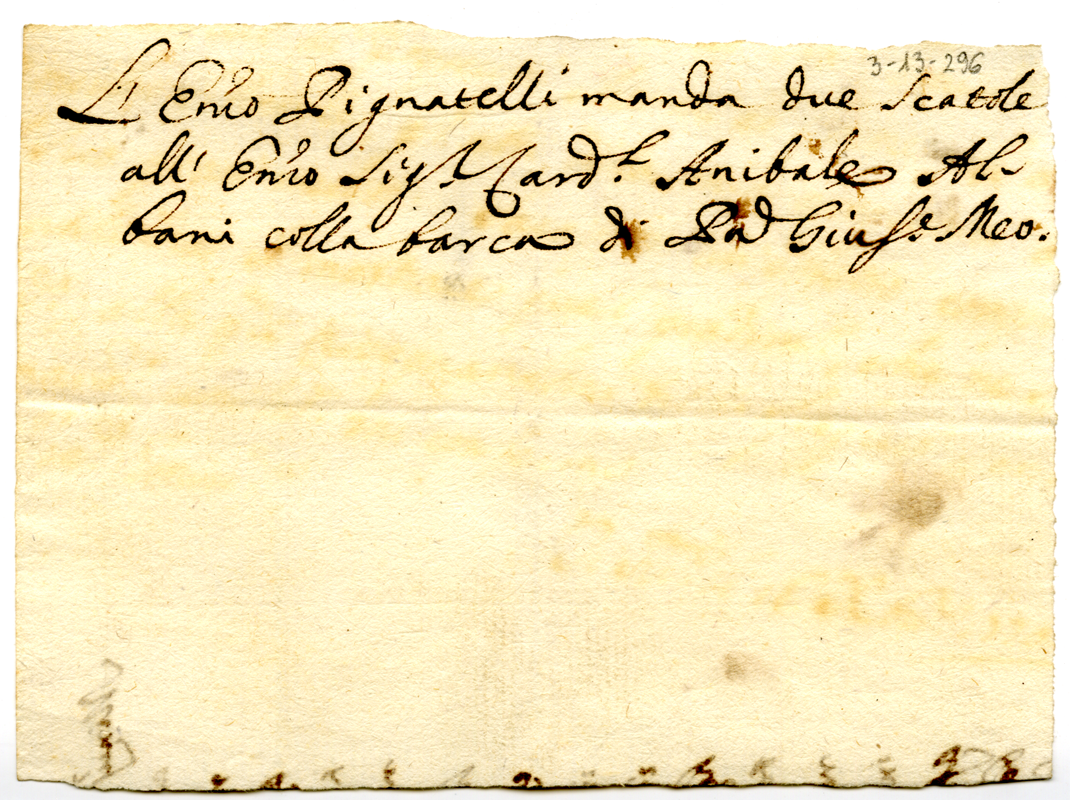 3-13-296
L'Em̃o Pignatelli manda due Scatole
all' Em̃o Sigr. Card.l Anibale Al-
bani colla barca di Pad Giuse. Meo.